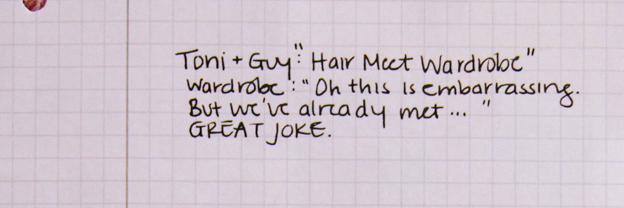 Toni + Guy: "Hair Meet Wardrobe"
Wardrobe: "Oh this is embarrassing.
But we've already met... "
GREAT JOKE.